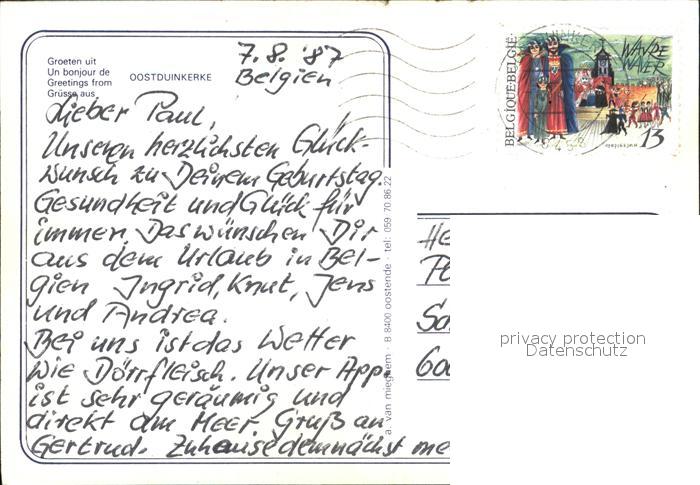 7.8.'87
Belgien
Groeten uit
Un bonjour de
Greetings from
Grüsse aus
OOSTDUINKERKE
Lieber Paul,
Unseren herzlichsten Glück-
wunsch zu Deinem Geburtstag.
Gesundheit und Glück für
immer. Das wünschen Dir
aus dem Urlaub in Bel-
gien Ingrid, Knut, Jens
und Andrea.
Bei uns ist das Wetter
wie Dörrfleisch. Unser App.
ist sehr geräumig und
direkt am Meer. Gruß an
Gertrud. Zuhause demnächst me
a. van mieghem - B 8400 oostende - tel: 059 70 86 22
BELGIQUE-BELGIË
WAVRE
WAVER
13
privacy protection
Datenschutz